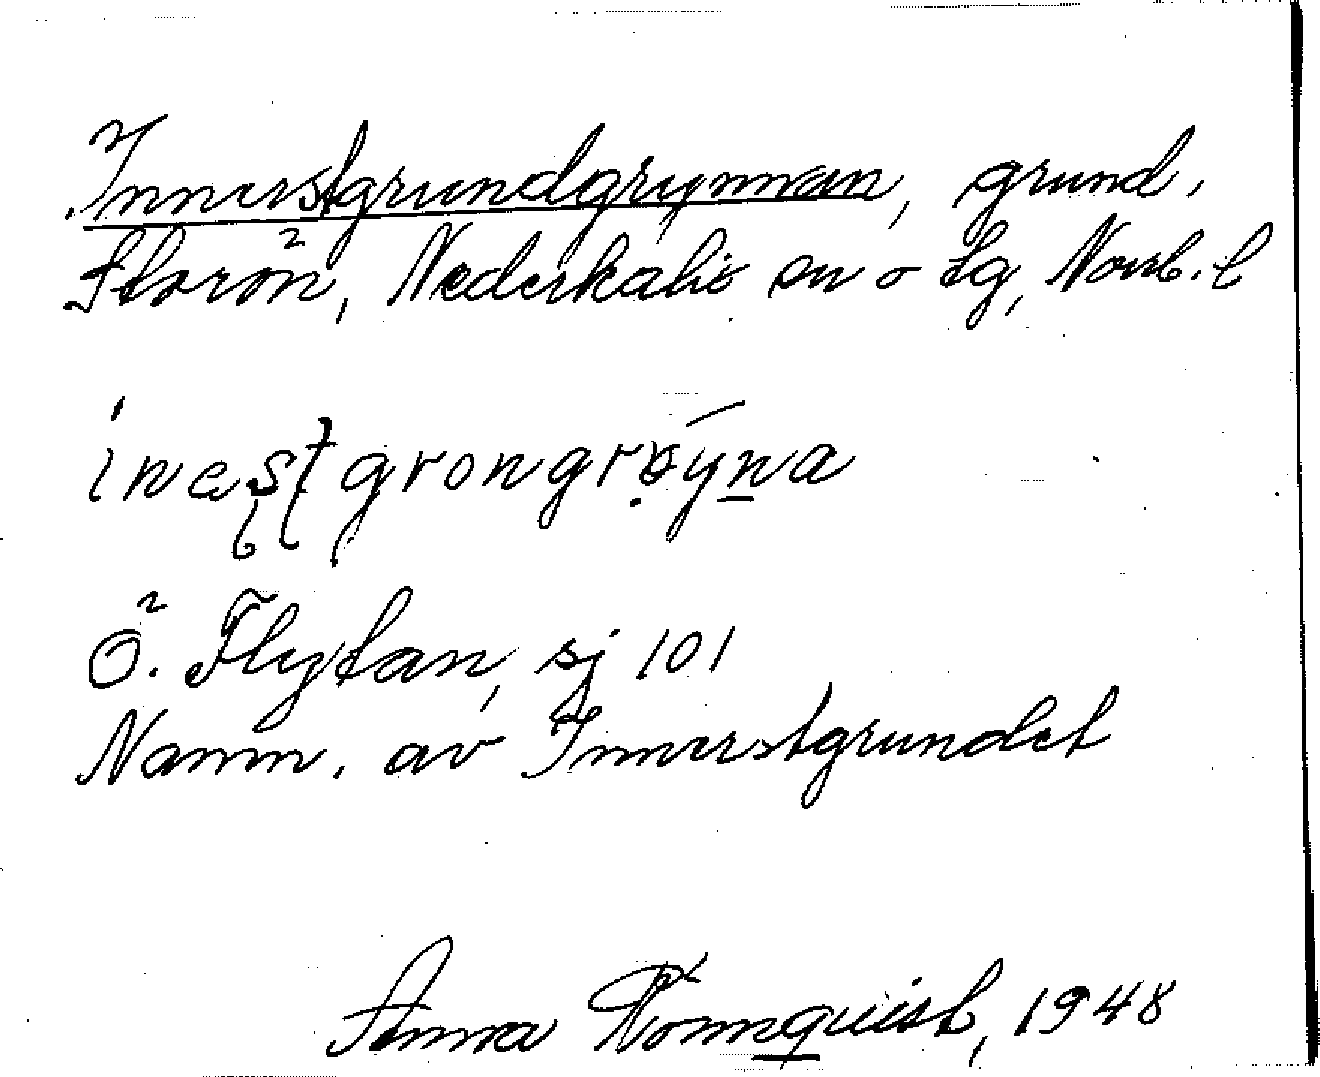 Innerstgrundgrynnan, grund,
Storön, Nederkalix sn o tg, Norrb. l
inestgrongrøyna
Ö. Flytan, sj 101
Namn. av Innerstgrundet
Anna Rönnquist, 1948